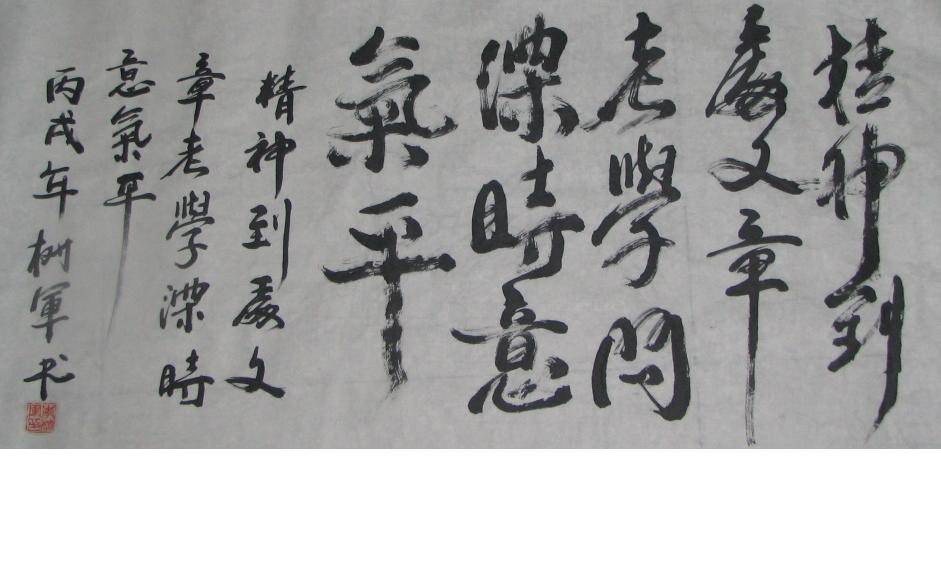 精神到
處文章
老學問
深時意
氣平
精神到處文
章老學深時
意氣平
丙戌年軍书